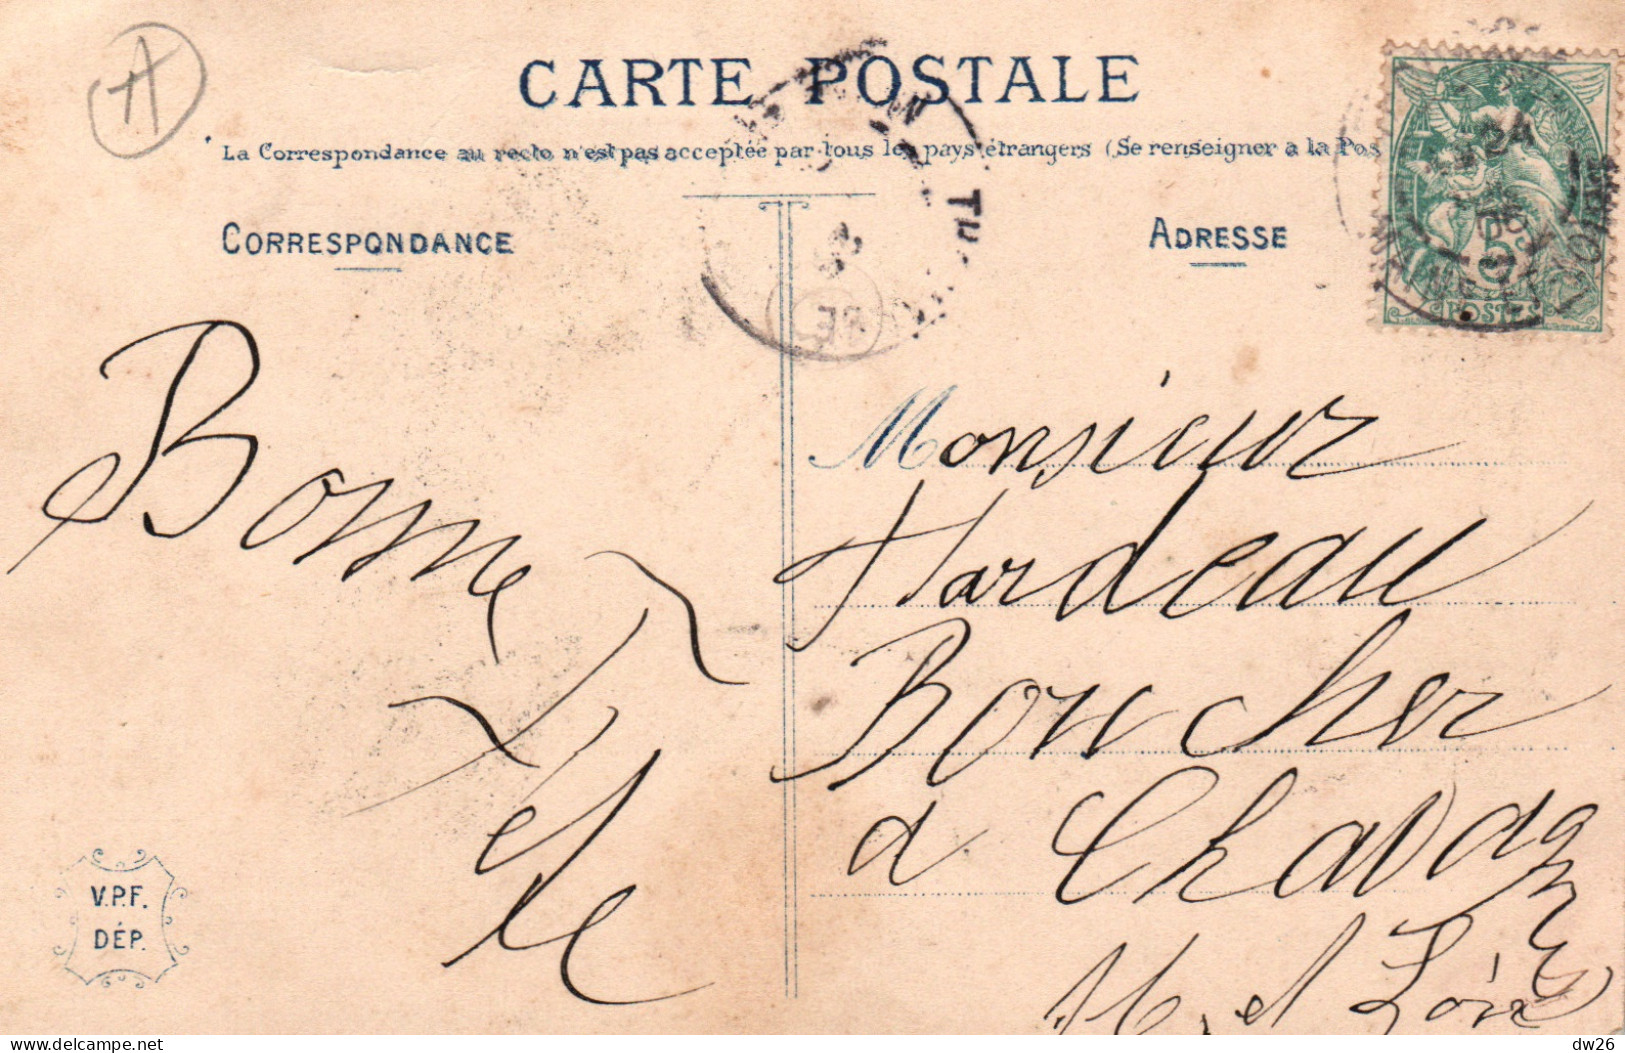 A
CARTE POSTALE
La Correspondance au recto n'est pas acceptée par tous les pays étrangers (Se renseigner à la Pos
CORRESPONDANCE
ADRESSE
5c
POSTES
Bonne
Fête
V.P.F.
DÉP.
Monsieur
Tardeau
Boucher
a Chavagnes
M. et Loire
dw26